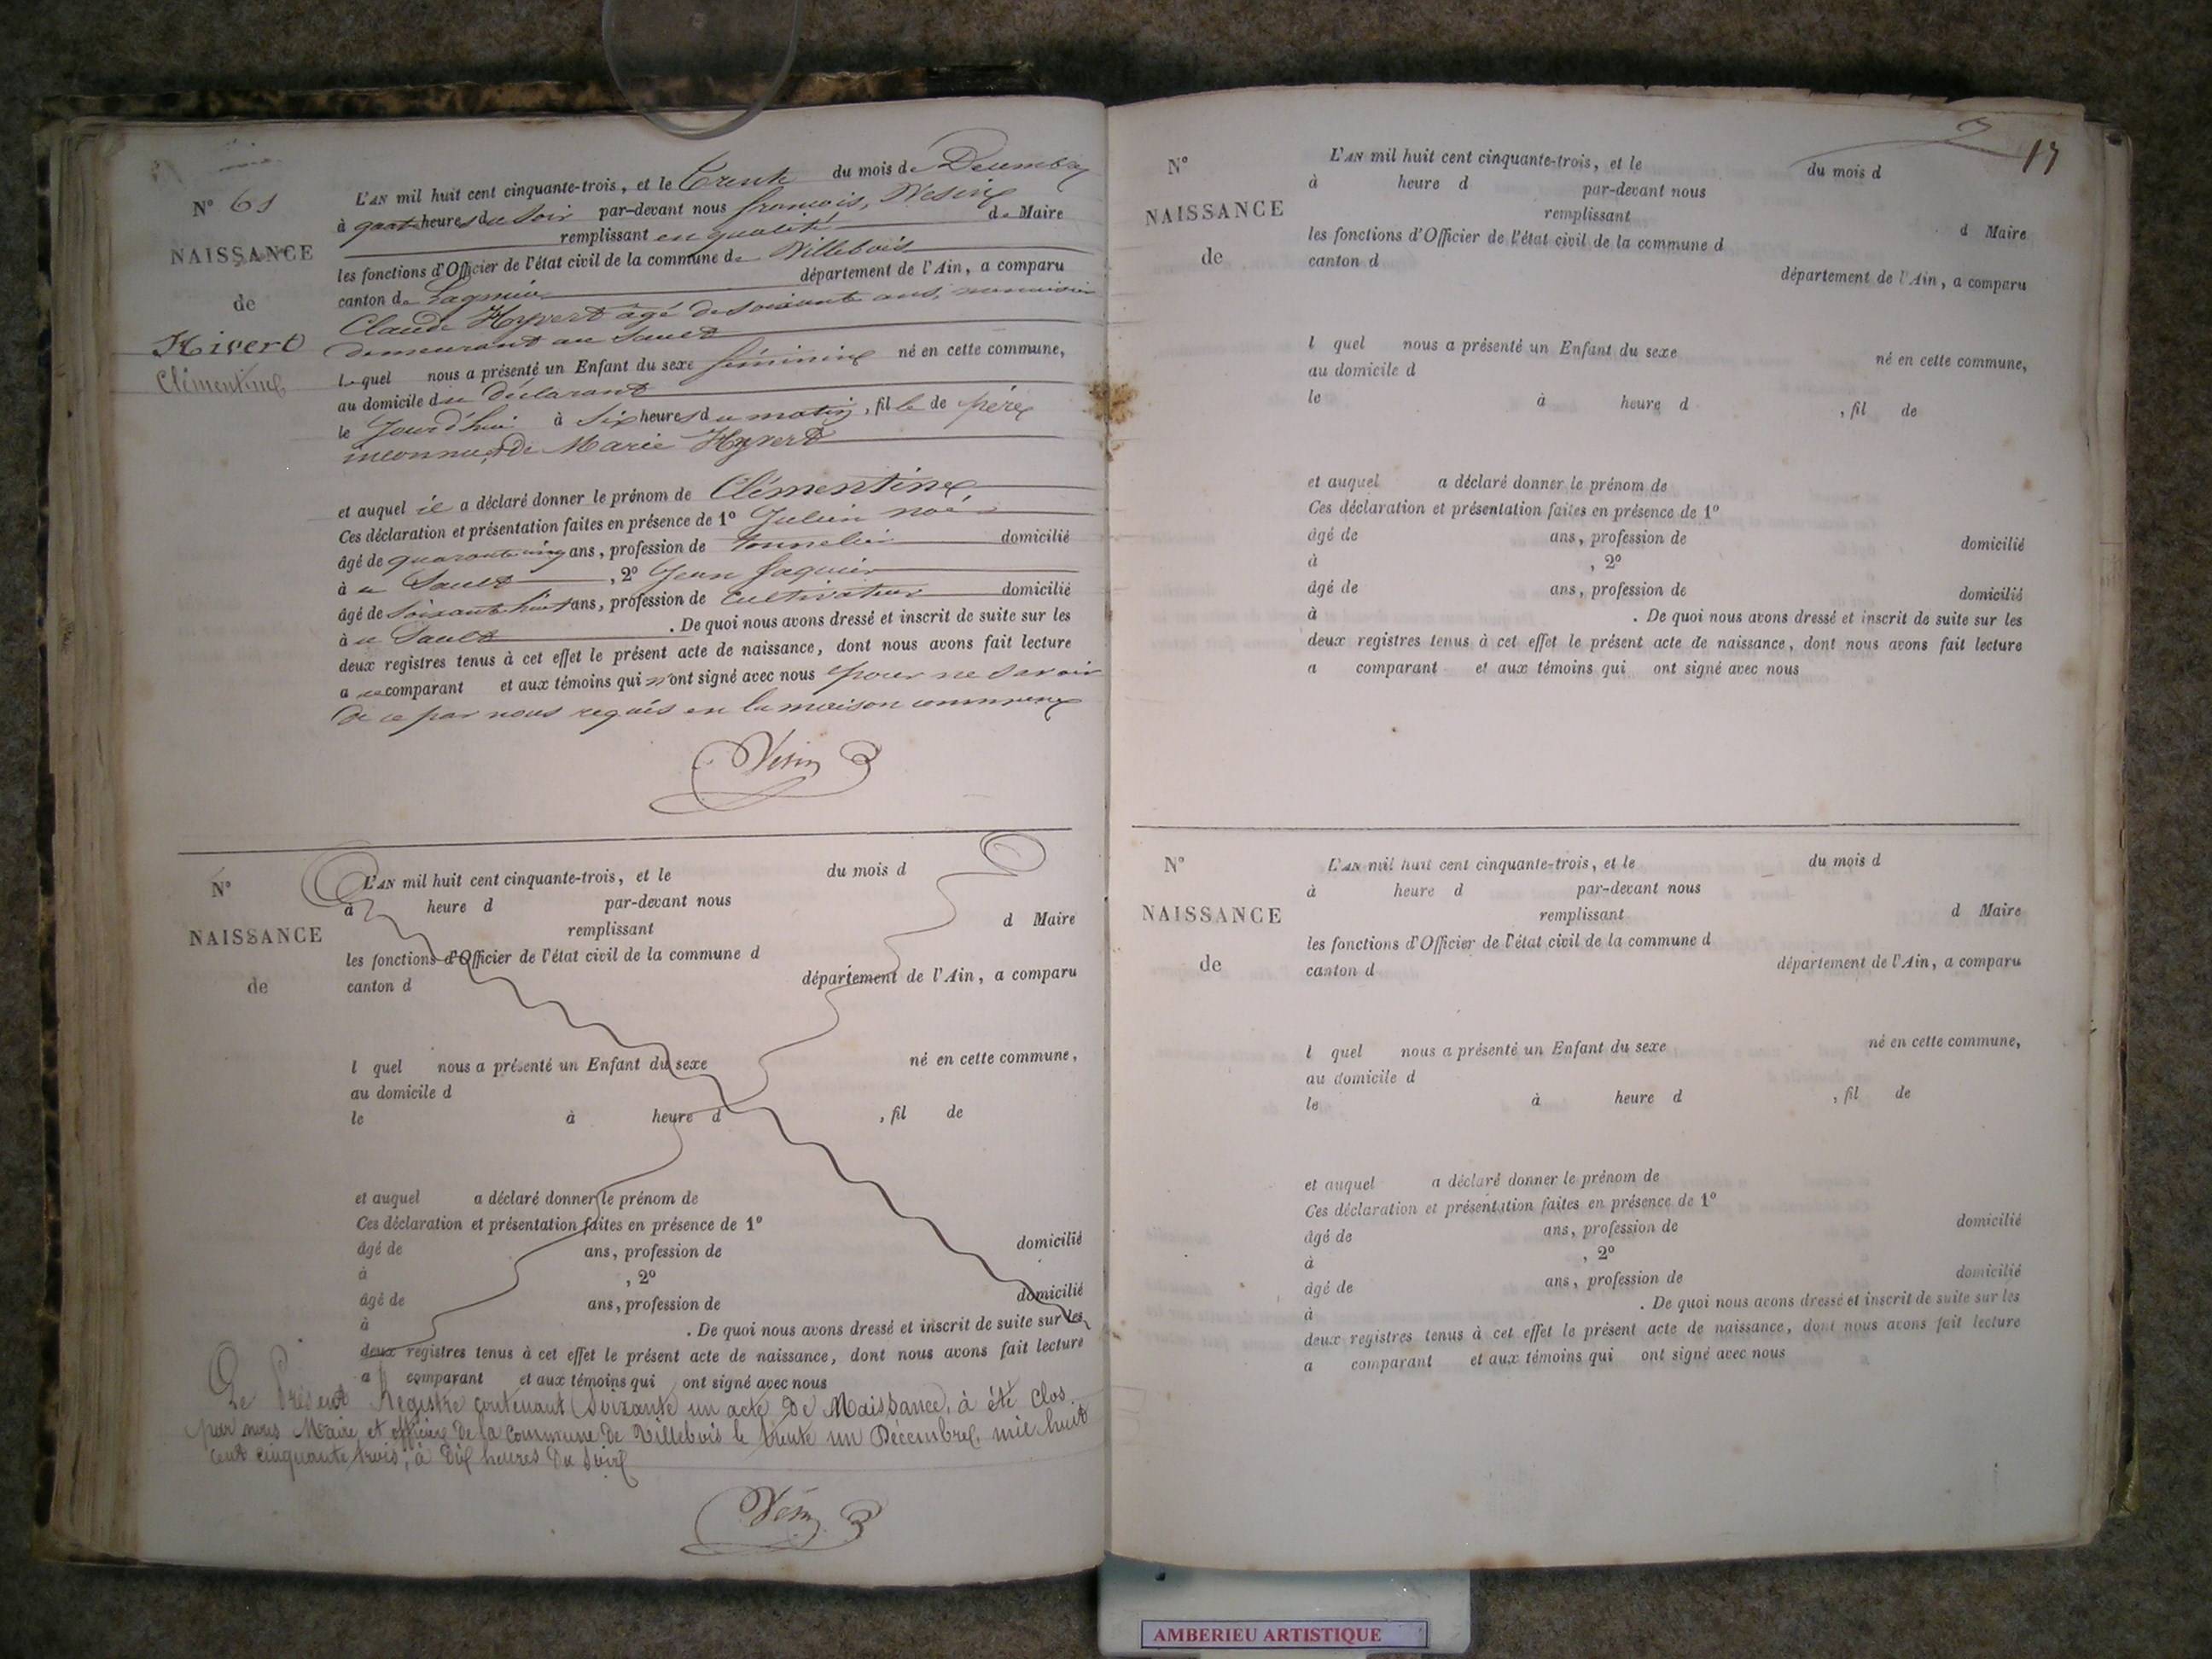 N° 61
NAISSANCE
de
Hivert
Clémentine
L'AN mil huit cent cinquante-trois, et le Trente du mois de Decembre
à quatre heures du Soir par-devant nous francois, Vesin
remplissant en qualité de Maire
les fonctions d'Officier de l'état civil de la commune de Villebois
canton de Lagnieu département de l'Ain, a comparu
Claude Hyvert âgé de soixante ans,
demeurant au Sault
lequel nous a présenté un Enfant du sexe féminin né en cette commune,
au domicile du déclarant
le Jourd'hui à six heures du matin, fille de père
inconnu, & de Marie Hyvert
et auquel il a déclaré donner le prénom de Clémentine,
Ces déclaration et présentation faites en présence de 1° Julien
âgé de quarante cinq ans, profession de tonnelier domicilié
à u Sault, 2° Jean Jaquier
âgé de soixante huit ans, profession de Cultivateur domicilié
à u Sault. De quoi nous avons dressé et inscrit de suite sur les
deux registres tenus à cet effet le présent acte de naissance, dont nous avons fait lecture
a u comparant et aux témoins qui n'ont signé avec nous pour ne savoir
de ce par nous requis en la maison commune
Vesin
N°
NAISSANCE
de
L'AN mil huit cent cinquante-trois, et le du mois d
à heure d par-devant nous
remplissant d Maire
les fonctions d'Officier de l'état civil de la commune d
canton d département de l'Ain, a comparu
l quel nous a présenté un Enfant du sexe né en cette commune,
au domicile d
le à heure d , fil de
et auquel a déclaré donner le prénom de
Ces déclaration et présentation faites en présence de 1°
âgé de ans, profession de domicilié
à , 2°
âgé de ans, profession de domicilié
à . De quoi nous avons dressé et inscrit de suite sur les
deux registres tenus à cet effet le présent acte de naissance, dont nous avons fait lecture
a comparant et aux témoins qui ont signé avec nous
Le Présent Registre contenant Soixante un acte de Naissance, à été Clos
par nous Maire et officier de la Commune de Villebois le trente un Décembre, mil huit
cent cinquante trois, à Dix heures Du Soir
Vesin
17
N°
NAISSANCE
de
L'AN mil huit cent cinquante-trois, et le du mois d
à heure d par-devant nous
remplissant d Maire
les fonctions d'Officier de l'état civil de la commune d
canton d département de l'Ain, a comparu
l quel nous a présenté un Enfant du sexe né en cette commune,
au domicile d
le à heure d , fil de
et auquel a déclaré donner le prénom de
Ces déclaration et présentation faites en présence de 1°
âgé de ans, profession de domicilié
à , 2°
âgé de ans, profession de domicilié
à . De quoi nous avons dressé et inscrit de suite sur les
deux registres tenus à cet effet le présent acte de naissance, dont nous avons fait lecture
a comparant et aux témoins qui ont signé avec nous
N°
NAISSANCE
de
L'AN mil huit cent cinquante-trois, et le du mois d
à heure d par-devant nous
remplissant d Maire
les fonctions d'Officier de l'état civil de la commune d
canton d département de l'Ain, a comparu
l quel nous a présenté un Enfant du sexe né en cette commune,
au domicile d
le à heure d , fil de
et auquel a déclaré donner le prénom de
Ces déclaration et présentation faites en présence de 1°
âgé de ans, profession de domicilié
à , 2°
âgé de ans, profession de domicilié
à . De quoi nous avons dressé et inscrit de suite sur les
deux registres tenus à cet effet le présent acte de naissance, dont nous avons fait lecture
a comparant et aux témoins qui ont signé avec nous
AMBERIEU ARTISTIQUE